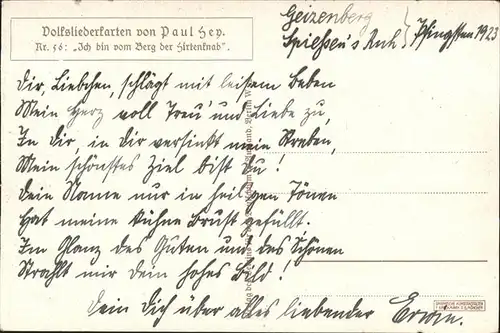 Volksliederkarten von Paul Hey.
Nr. 56: „Ich bin vom Berg der Hirtenknab“.
Geizenberg
Spiessen's Ruh } Pfingsten 1923
Dir, Liebchen, schlägt mit leisem Beben
Mein Herz voll Treu' und Liebe zu,
In Dir, in Dir versinkt mein Streben,
Mein schönstes Ziel bist Du!
Dein Name nur in heil'gen Tönen
Hat meine kühne Brust gefüllt.
Im Glanz des Guten und des Schönen
Strahlt mir Dein hohes Bild!
Dein Dich über alles liebender Erwin.